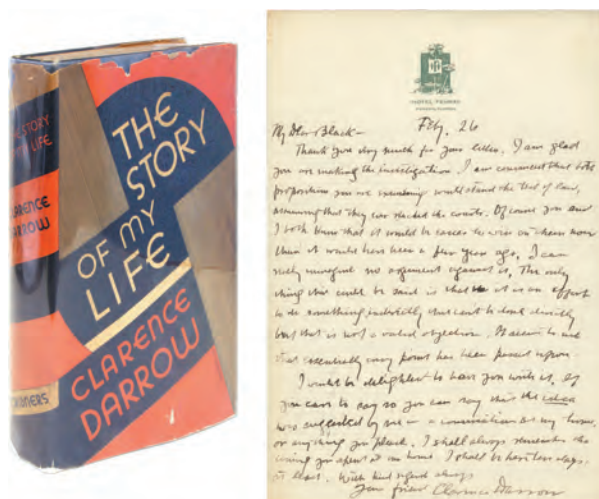 THE STORY
LIFE
CLARENCE
DARROW
SCRIBNERS
THE
STORY
OF MY
LIFE
CLARENCE
DARROW
My Dear Black—
Feby. 26
Thank you very much for your letter. I am glad
you are making the investigation. I am convinced that both
propositions you are examining would stand the test of law,
assuming that they ever reached the courts. Of course you and
I both know that it would be easier to win on them now
than it would have been a few years ago. I can
really imagine no argument against it, The only
thing that could be said is that it is an effort
to do something indirectly that can't be done directly
but that is not a valid objection. It seems to me
that essentially every point has been passed upon.
I would be delighted to have you write it. If
you care to say so you can say that the idea
was suggested by me in a conversation at my home,
or anything you please. I shall always remember the
evening you spent at our home. I shall be here ten days
at least. With kind regards always
Your friend Clarence Darrow